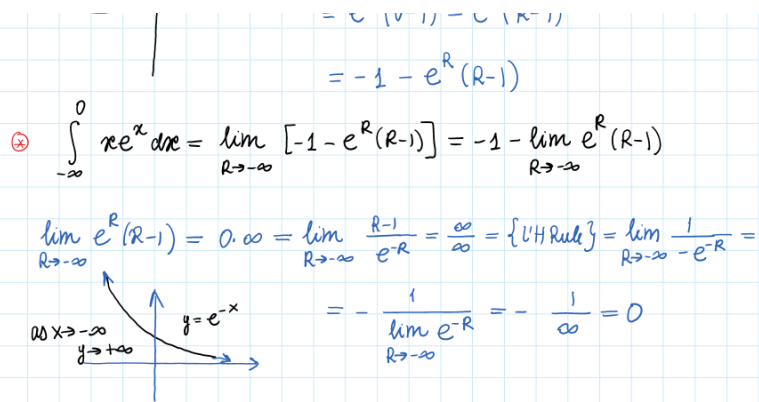 = -1 - e^R (R-1)
⊛ ∫_{-∞}^{0} xe^x dx = lim_{R→-∞} [-1 - e^R (R-1)] = -1 - lim_{R→-∞} e^R (R-1)
lim_{R→-∞} e^R (R-1) = 0·∞ = lim_{R→-∞} (R-1)/(e^{-R}) = ∞/∞ = {L'H Rule} = lim_{R→-∞} 1/(-e^{-R}) =
= - 1/(lim_{R→-∞} e^{-R}) = - 1/∞ = 0
y = e^{-x}
as x→-∞
y→+∞